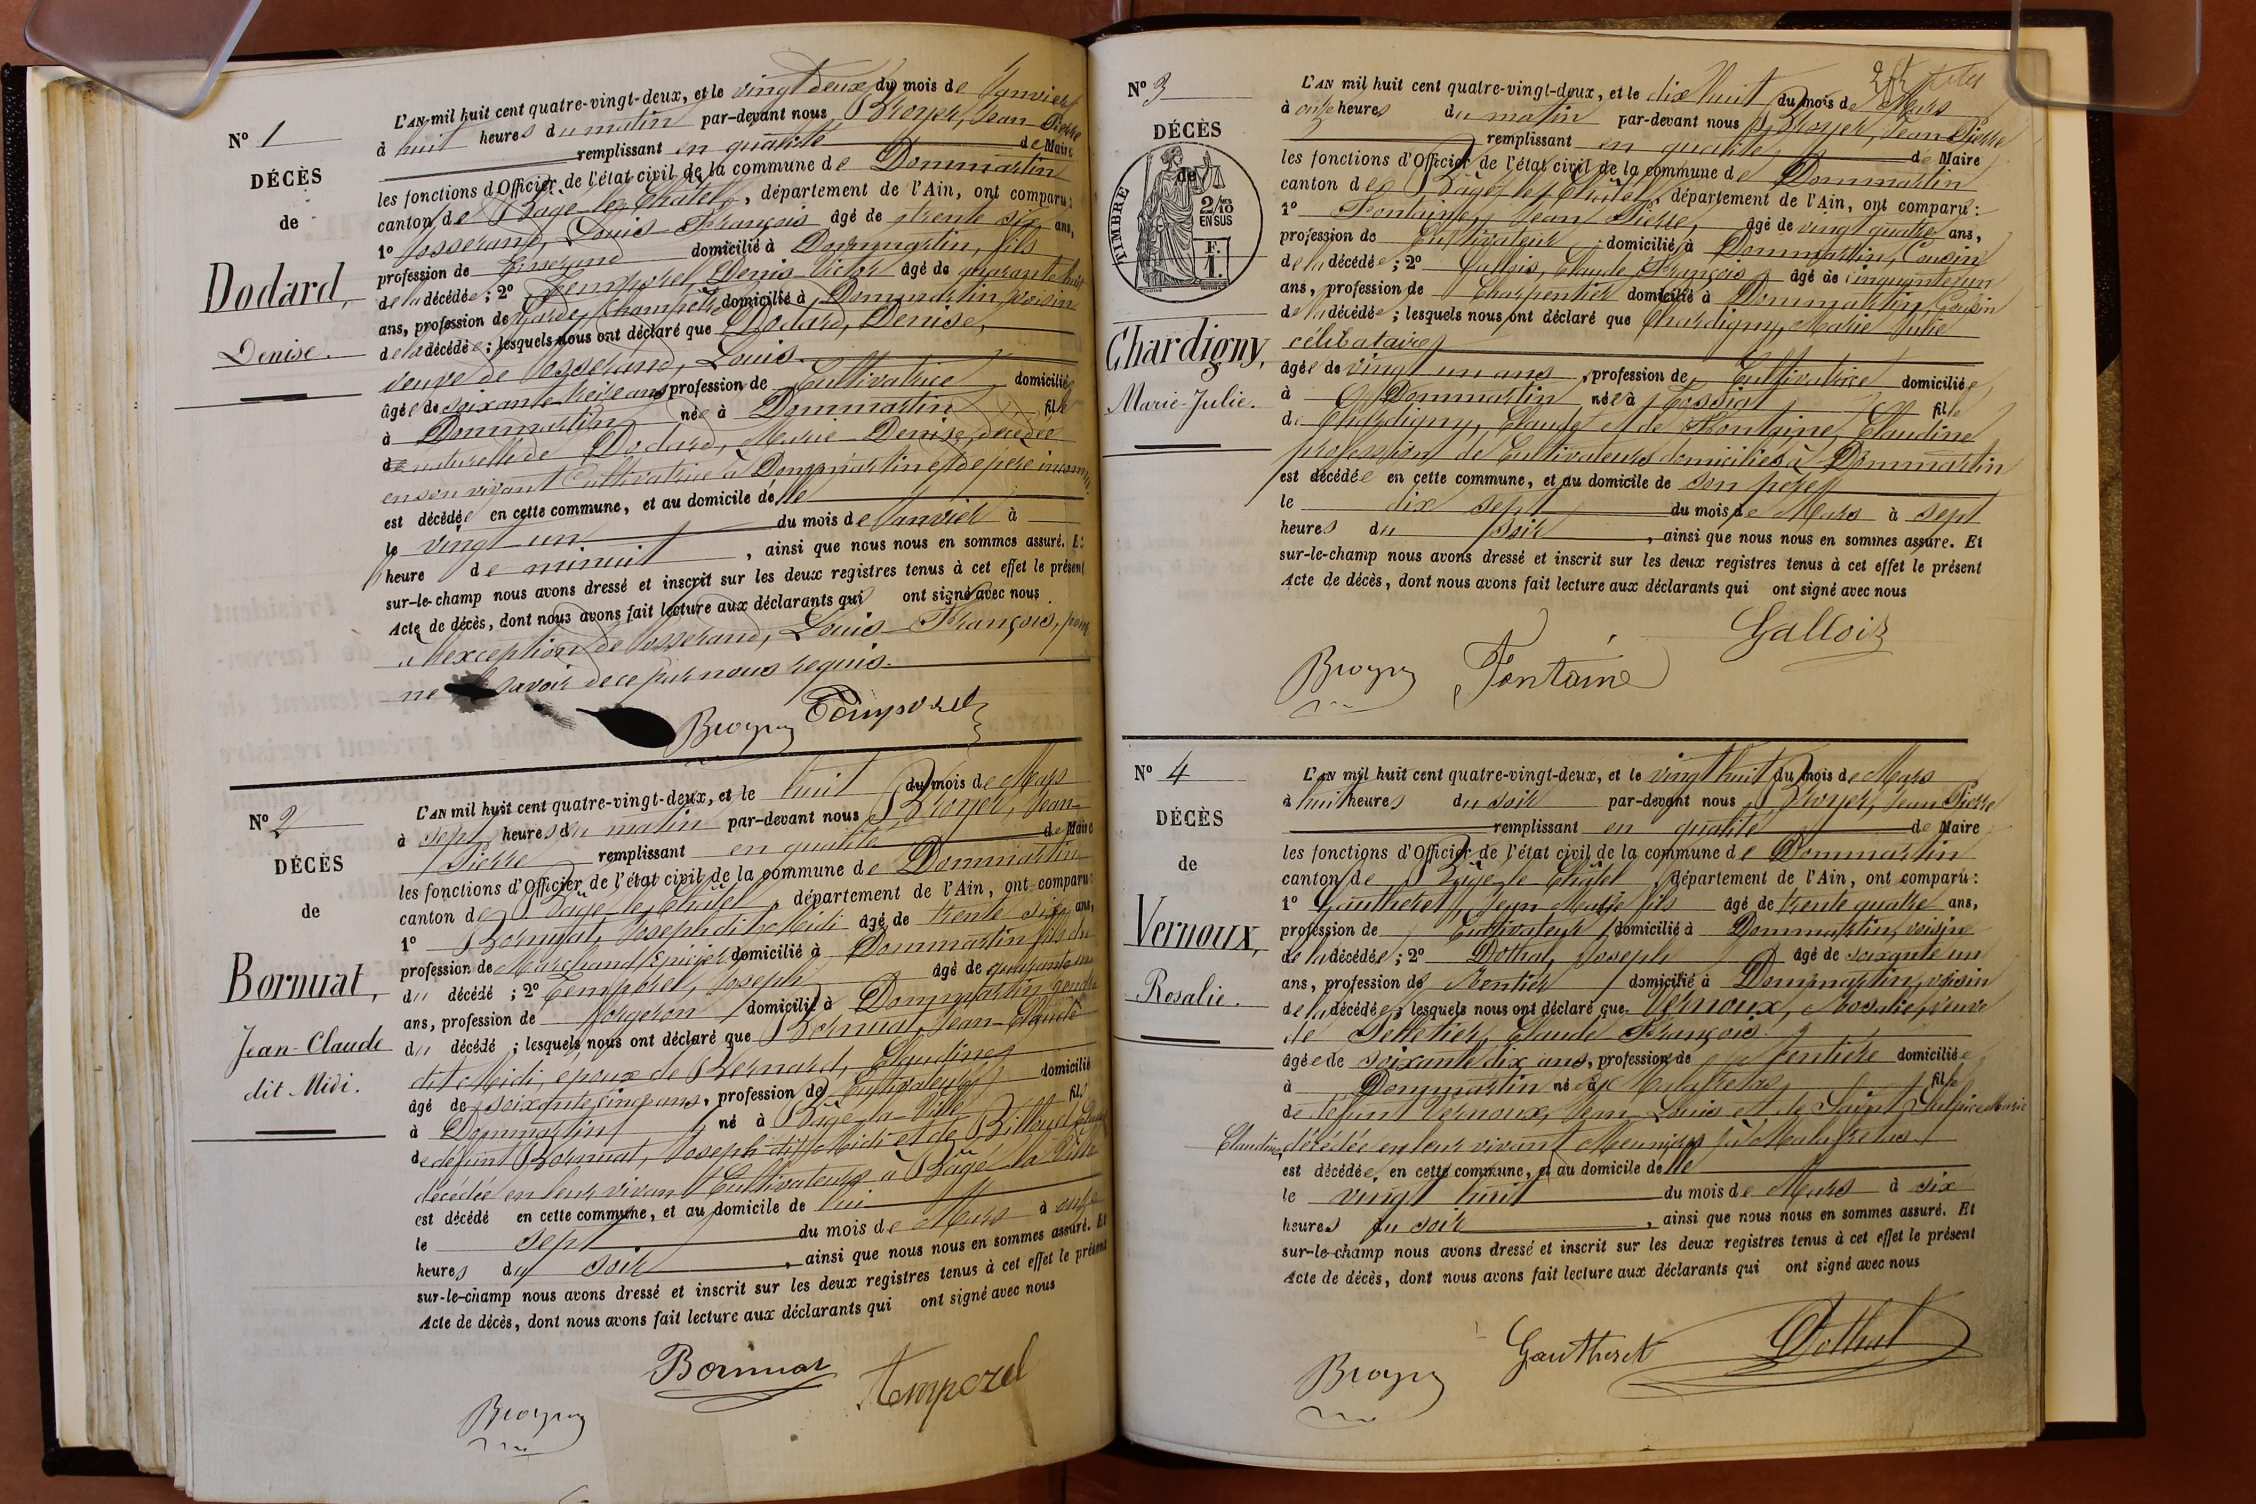 N° 1
DÉCÈS
de
Dodard,
Denise.
L'AN mil huit cent quatre-vingt-deux, et le vingt deux du mois de Janvier
à huit heures du matin par-devant nous Broyer, Jean Pierre
remplissant en qualité de Maire
les fonctions d'Officier de l'état civil de la commune de Dommartin
canton de Bâgé-le-Châtel, département de l'Ain, ont comparu:
1° Josserand, Louis-François âgé de trente six ans,
profession de Tisserand domicilié à Dommartin, fils
de la décédée; 2° Temporel, Denis Victor âgé de quarante huit
ans, profession de Garde Champêtre domicilié à Dommartin voisin
de la décédée; lesquels nous ont déclaré que Dodard, Denise,
veuve de Josserand, Louis
âgée de soixante treize ans profession de Cultivatrice domiciliée
à Dommartin née à Dommartin fille
naturelle de Dodard, Marie-Denise, décédée
en son vivant Cultivatrice à Dommartin et de père inconnu
est décédée en cette commune, et au domicile d'elle
le vingt un du mois de Janvier à
heure de minuit, ainsi que nous nous en sommes assuré. Et
sur-le-champ nous avons dressé et inscrit sur les deux registres tenus à cet effet le présent
Acte de décès, dont nous avons fait lecture aux déclarants qui ont signé avec nous
à l'exception de Josserand, Louis-François, pour
ne savoir de ce par nous requis.
Broyer Temporel
N° 2
DÉCÈS
de
Bornuat,
Jean-Claude
dit Midi.
L'AN mil huit cent quatre-vingt-deux, et le huit du mois de Mars
à sept heures du matin par-devant nous Broyer, Jean-
Pierre remplissant en qualité de Maire
les fonctions d'Officier de l'état civil de la commune de Dommartin
canton de Bâgé-le-Châtel, département de l'Ain, ont comparu:
1° Bornuat, Joseph dit Midi âgé de trente six ans,
profession de Marchand Epicier domicilié à Dommartin fils du
du décédé; 2° Temporel, Joseph âgé de quarante un
ans, profession de Forgeron domicilié à Dommartin gendre
du décédé; lesquels nous ont déclaré que Bornuat, Jean-Claude
dit Midi, époux de Bernard, Claudine
âgé de soixante cinq ans, profession de Cultivateur domicilié
à Dommartin né à Bâgé-la-Ville fils
de défunt Bornuat, Joseph dit Midi et de Billoud
décédée en leur vivant Cultivateurs à Bâgé-la-Ville
est décédé en cette commune, et au domicile de lui
le sept du mois de Mars à onze
heures du soir, ainsi que nous nous en sommes assuré. Et
sur-le-champ nous avons dressé et inscrit sur les deux registres tenus à cet effet le présent
Acte de décès, dont nous avons fait lecture aux déclarants qui ont signé avec nous
Bornuat Temporel
Broyer
N° 3
DÉCÈS
de
TIMBRE
2/10
EN SUS
F.
1.
Chardigny,
Marie-Julie.
L'AN mil huit cent quatre-vingt-deux, et le dix huit du mois de Mars
à onze heures du matin par-devant nous Broyer, Jean Pierre
remplissant en qualité de Maire
les fonctions d'Officier de l'état civil de la commune de Dommartin
canton de Bâgé-le-Châtel, département de l'Ain, ont comparu:
1° Fontaine, Jean Pierre, âgé de vingt quatre ans,
profession de Cultivateur domicilié à Dommartin, Cousin
de la décédée; 2° Gallois, Claude François âgé de cinquante un
ans, profession de Charpentier domicilié à Dommartin, Cousin
de la décédée; lesquels nous ont déclaré que Chardigny, Marie Julie
célibataire
âgée de vingt un ans, profession de Cultivatrice domiciliée
à Dommartin née à Cossiat fille
de Chardigny, Claude et de Fontaine, Claudine
profession de Cultivateurs domiciliés à Dommartin
est décédée en cette commune, et au domicile de son père
le dix sept du mois de Mars à sept
heures du soir, ainsi que nous nous en sommes assuré. Et
sur-le-champ nous avons dressé et inscrit sur les deux registres tenus à cet effet le présent
Acte de décès, dont nous avons fait lecture aux déclarants qui ont signé avec nous
Gallois
Broyer Fontaine
N° 4
DÉCÈS
de
Vernoux,
Rosalie.
L'AN mil huit cent quatre-vingt-deux, et le vingt huit du mois de Mars
à huit heures du soir par-devant nous Broyer, Jean Pierre
remplissant en qualité de Maire
les fonctions d'Officier de l'état civil de la commune de Dommartin
canton de Bâgé-le-Châtel, département de l'Ain, ont comparu:
1° Gautheret, Jean Marie fils âgé de trente quatre ans,
profession de Cultivateur domicilié à Dommartin, voisin
de la décédée; 2° Dothal, Joseph âgé de soixante un
ans, profession de Rentier domicilié à Dommartin, voisin
de la décédée; lesquels nous ont déclaré que Vernoux, Rosalie, veuve
de Pelletier, Claude François
âgée de soixante dix ans, profession de rentière domiciliée
à Dommartin née à Malafretas fille
de défunt Vernoux, Jean Louis et de Saint Sulpice Marie
Claudine, décédée en leur vivant Meuniers à Malafretas
est décédée en cette commune, et au domicile d'elle
le vingt huit du mois de Mars à six
heures du soir, ainsi que nous nous en sommes assuré. Et
sur-le-champ nous avons dressé et inscrit sur les deux registres tenus à cet effet le présent
Acte de décès, dont nous avons fait lecture aux déclarants qui ont signé avec nous
Broyer Gautheret Dothal